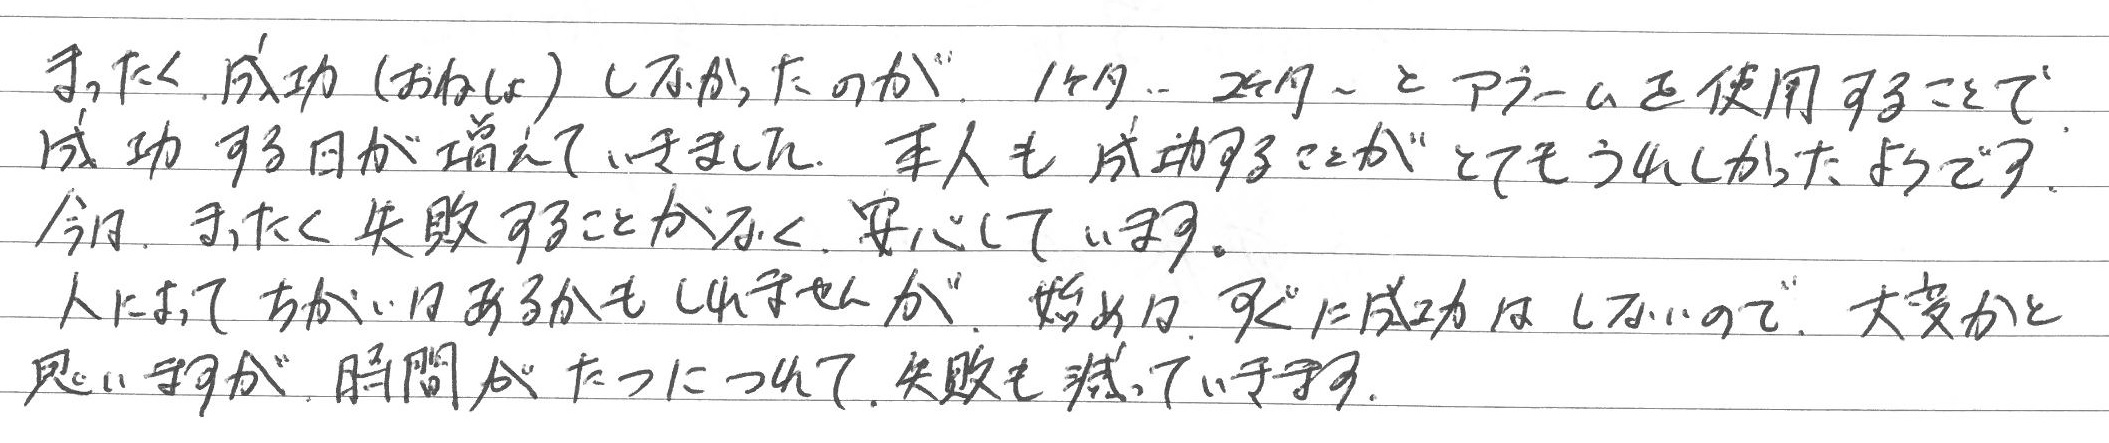 まったく、成功(おねしょ)しなかったのが、1ヶ月‥2ヶ月〜とアラームを使用することで、
成功する日が増えていきました。本人も成功することがとてもうれしかったようです。
今は、まったく失敗することがなく、安心しています。
人によってちがいはあるかもしれませんが、始めは、すぐに成功はしないので、大変かと
思いますが、時間がたつにつれて、失敗も減っていきます。